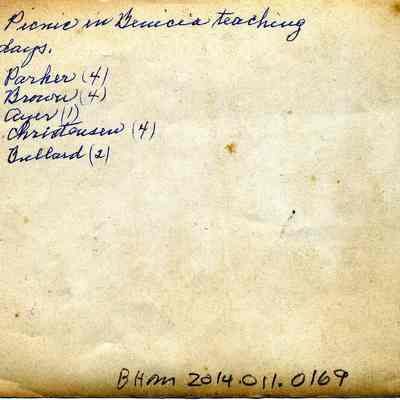 Picnic in Benicia teaching
days.
Parker (4)
Brown (4)
Ayer (1)
Christensen (4)
Bullard (2)
BHM 2014.011.0169